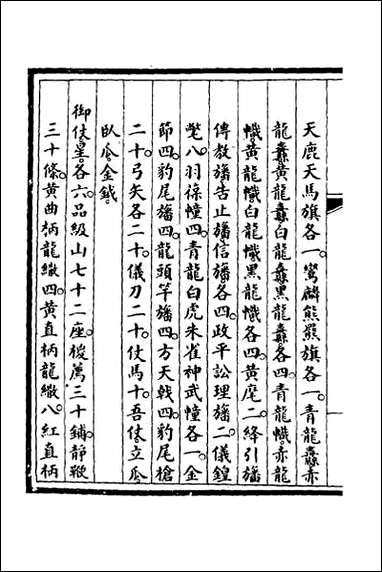 天鹿天馬旗各一鸞麟熊羆旗各一青龍纛赤
龍纛黃龍纛白龍纛黑龍纛各四青龍幟赤龍
幟黃龍幟白龍幟黑龍幟各四黃麾二絳引旛
傳教旛告止旛信旛各四政平訟理旛二儀鍠
氅八羽葆幢四青龍白虎朱雀神武幢各一金
節四豹尾旛四龍頭竿旛四方天戟四豹尾槍
二十弓矢各二十儀刀二十仗馬十吾仗立瓜
臥瓜金鉞
御仗星各六品級山七十二座椶薦三十鋪靜鞭
三十條黃曲柄龍繖四黃直柄龍繖八紅直柄